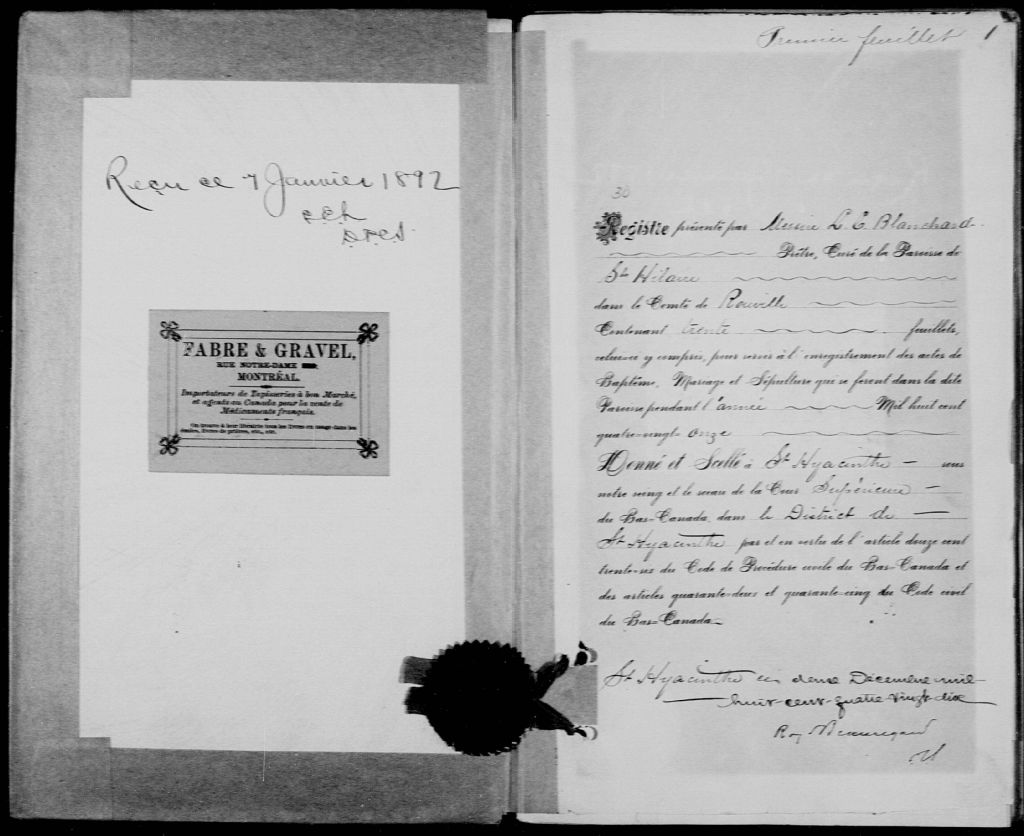 Reçu ce 7 Janvier 1892
FABRE & GRAVEL,
RUE NOTRE-DAME
MONTRÉAL.
Importateurs de Tapisseries à bon Marché,
et agents au Canada pour la vente de
Médicaments français.
On trouve à leur librairie tous les livres en usage dans les
écoles, livres de prières, etc., etc.
Premier feuillet 1
30
Registre présenté par Messire L. E. Blanchard
Prêtre, Curé de la Paroisse de
St Hilaire
dans le Comté de Rouville
Contenant trente feuillets,
celui-ci y compris, pour servir à l'enregistrement des actes de
Baptême, Mariage et Sépulture qui se feront dans la dite
Paroisse pendant l'année Mil huit cent
quatre-vingt-onze
Donné et Scellé à St Hyacinthe – sous
notre seing et le sceau de la Cour Supérieure –
du Bas-Canada, dans le District de —
St Hyacinthe par et en vertu de l'article douze cent
trente-six du Code de Procédure civile du Bas-Canada et
des articles quarante-deux et quarante-cinq du Code civil
du Bas-Canada
St Hyacinthe Décembre mil
huit cent quatre vingt dix
Roy Beauregard